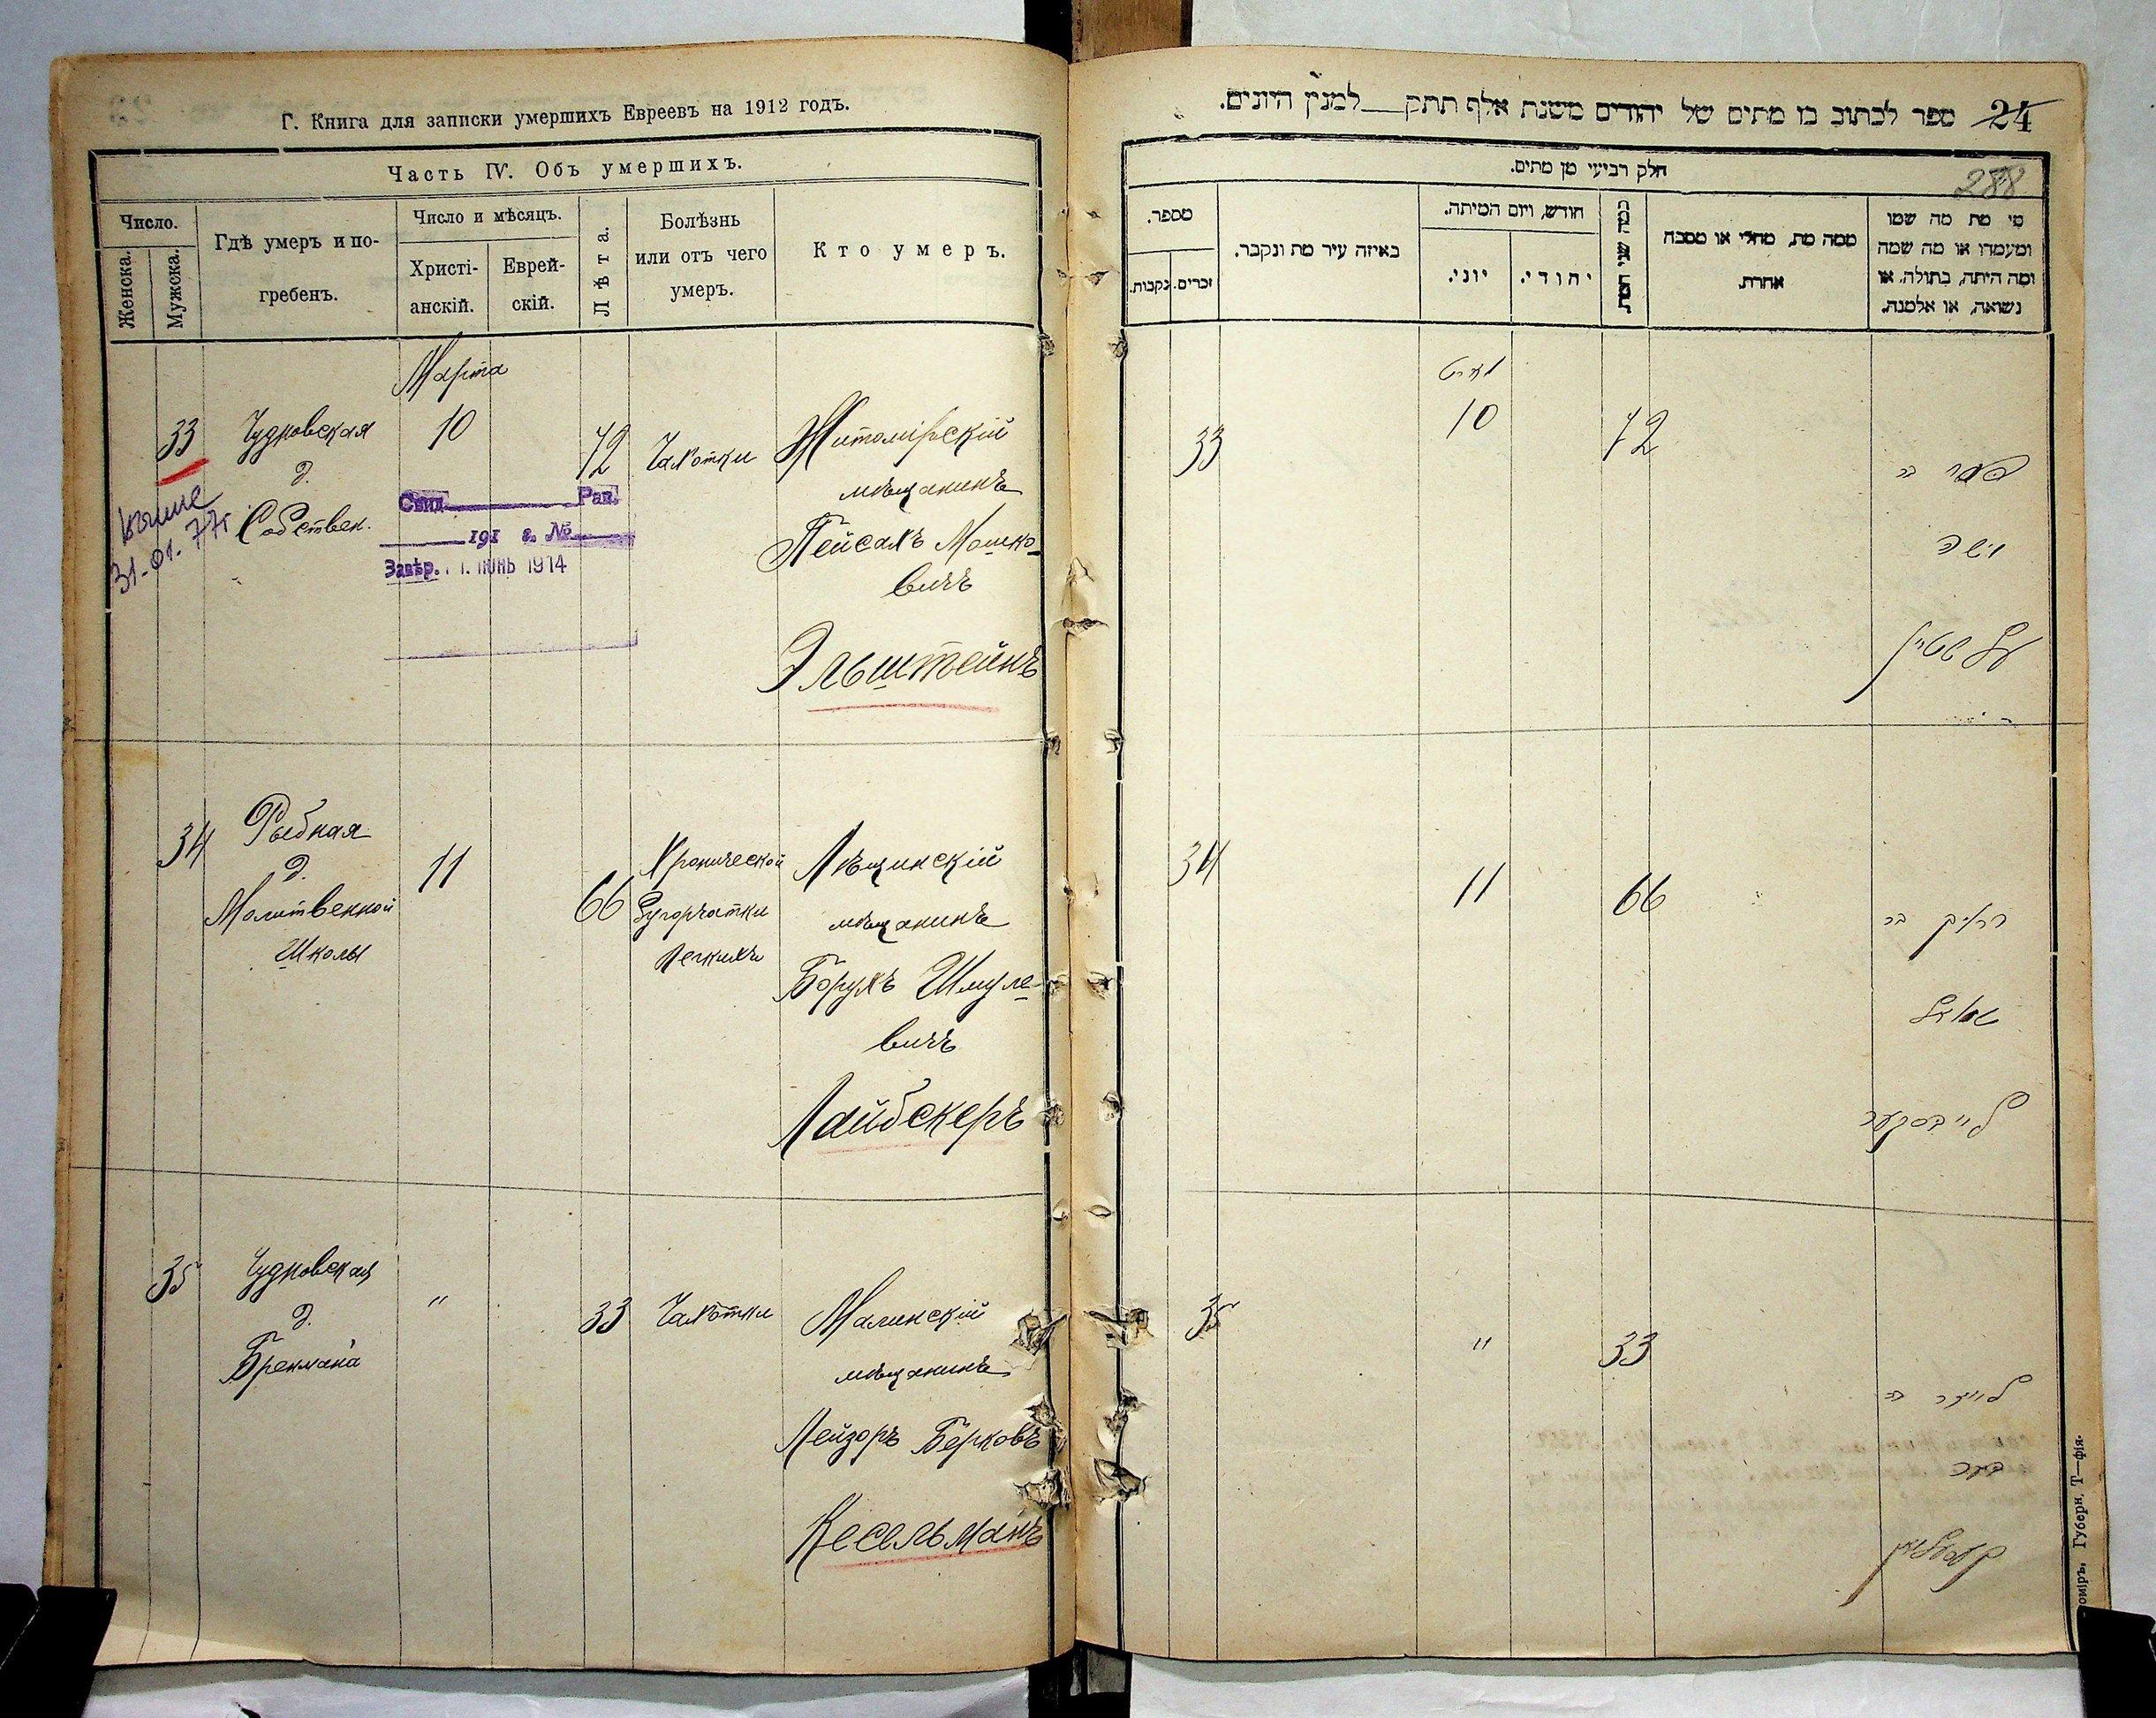 Г. Книга для записки умершихъ Евреевъ на 1912 годъ.
Часть IV. Объ умершихъ.
Число.
Женска.
Мужска.
Гдѣ умеръ и по-
гребенъ.
Число и мѣсяцъ.
Христі-
анскій.
Еврей-
скій.
Лѣта.
Болѣзнь
или отъ чего
умеръ.
Кто умеръ.
Марта
33
Чудновская
д.
Собствен.
10
72
Чахотки
Житомірскій
мѣщанинъ
Пейсахъ Мошко-
вичъ
Эльштейнъ
31-01-77г
Свид. Рав.
191 г. №
Завѣр. 1. ІЮНЬ 1914
34
Рыбная
д.
Молитвенной
Школы
11
66
Хронической
Бугорчатки
Легкихъ
Лѣщинскій
мѣщанинъ
Борухъ Шмуле-
вичъ
Лайбскеръ
35
Чудновская
д.
Бренмана
"
33
Чахотки
Малинскій
мѣщанинъ
Лейзоръ Берковъ
Кесельманъ
24 ספר לכתוב בו מתים של יהודים משנת אלף תתק למנין היונים.
288
חלק רביעי מן מתים.
מספר.
זכרים.
נקבות.
באיזה עיר מת ונקבר.
חודש, ויום המיתה.
יוני.
יהודי.
כמה שני המת
ממה מת, מחלי או מסבה
אחרת.
מי מת מה שמו
ומעמדו או מה שמה
ומה היתה, בתולה, או
נשואה, או אלמנה.
מארט
33
10
72
פסח בר
משה
עלשטיין
34
11
66
ברוך בר
שמואל
לייבסקער
35
"
33
לייזר בר
בער
קעסעלמאן
омiръ, Губерн. Т—фія.